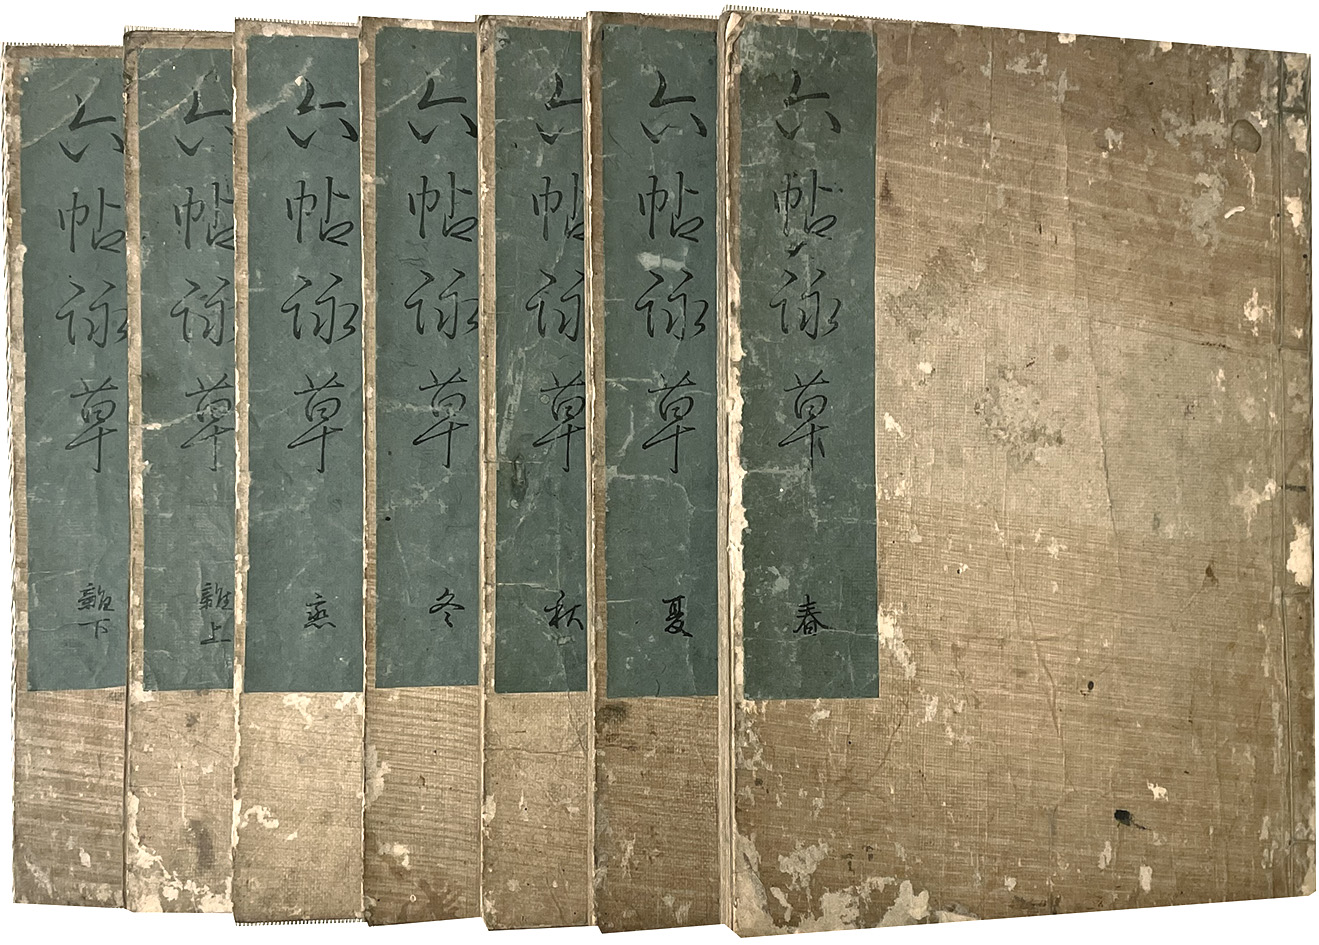 六帖詠草 春
六帖詠草 夏
六帖詠草 秋
六帖詠草 冬
六帖詠草 恋
六帖詠草 雜上
六帖詠草 雜下